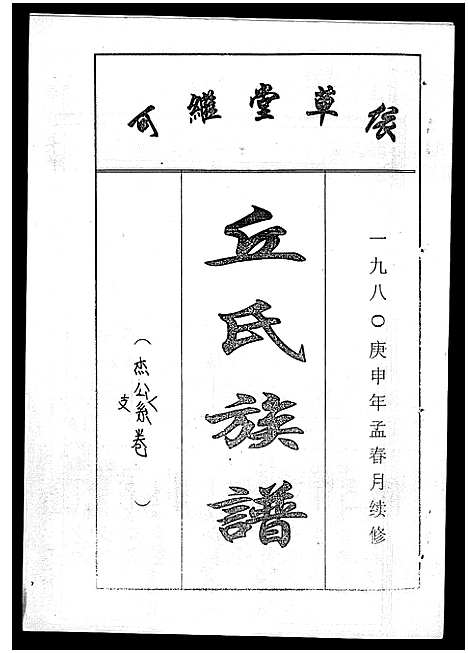 可繼堂草
一九八〇庚申年孟春月续修
丘氏族譜
（杰公支系卷）